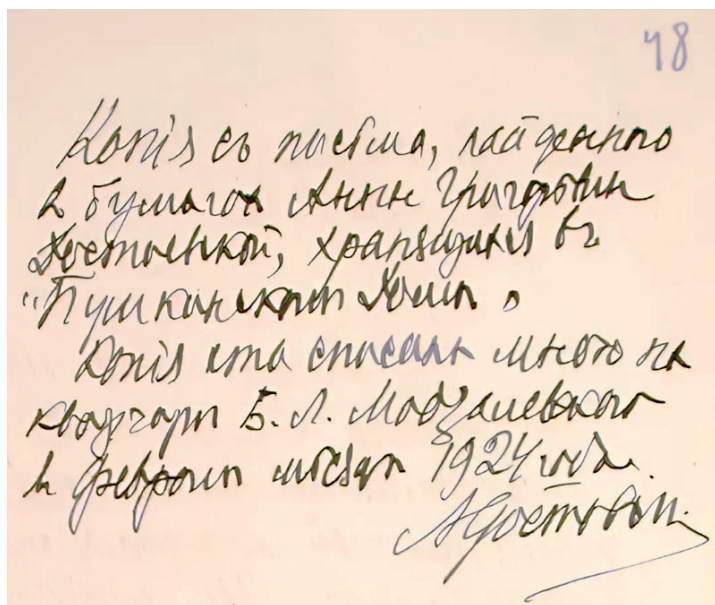 48
Копія съ письма, найденнаго
в бумагах Анны Григорьевны
Достоевской, хранящихся въ
"Пушкинском Доме".
Копія эта списана мною на
квартире Б. Л. Модзалевского
в феврале месяце 1924 года.
АДостоевскій.